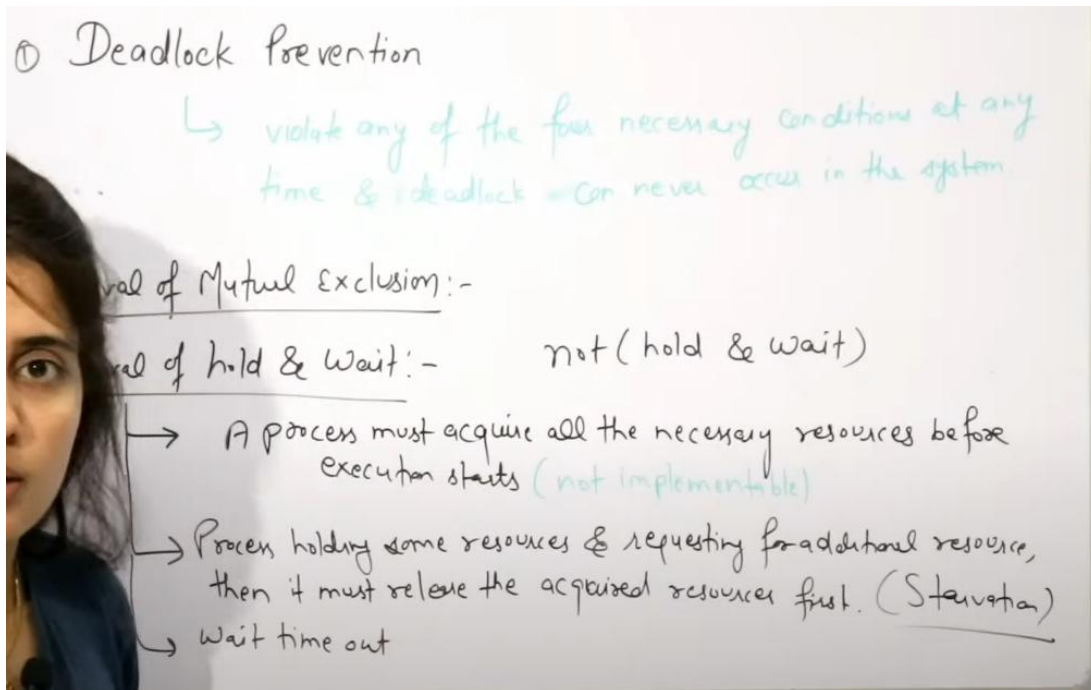 ① Deadlock Prevention
↳ violate any of the four necessary conditions at any
time & deadlock can never occur in the system.
val of Mutual Exclusion:-
al of hold & Wait:- not (hold & wait)
→ A process must acquire all the necessary resources before
execution starts (not implementable)
→ Process holding some resources & requesting for additional resource,
then it must release the acquired resources first. (Starvation)
→ Wait time out